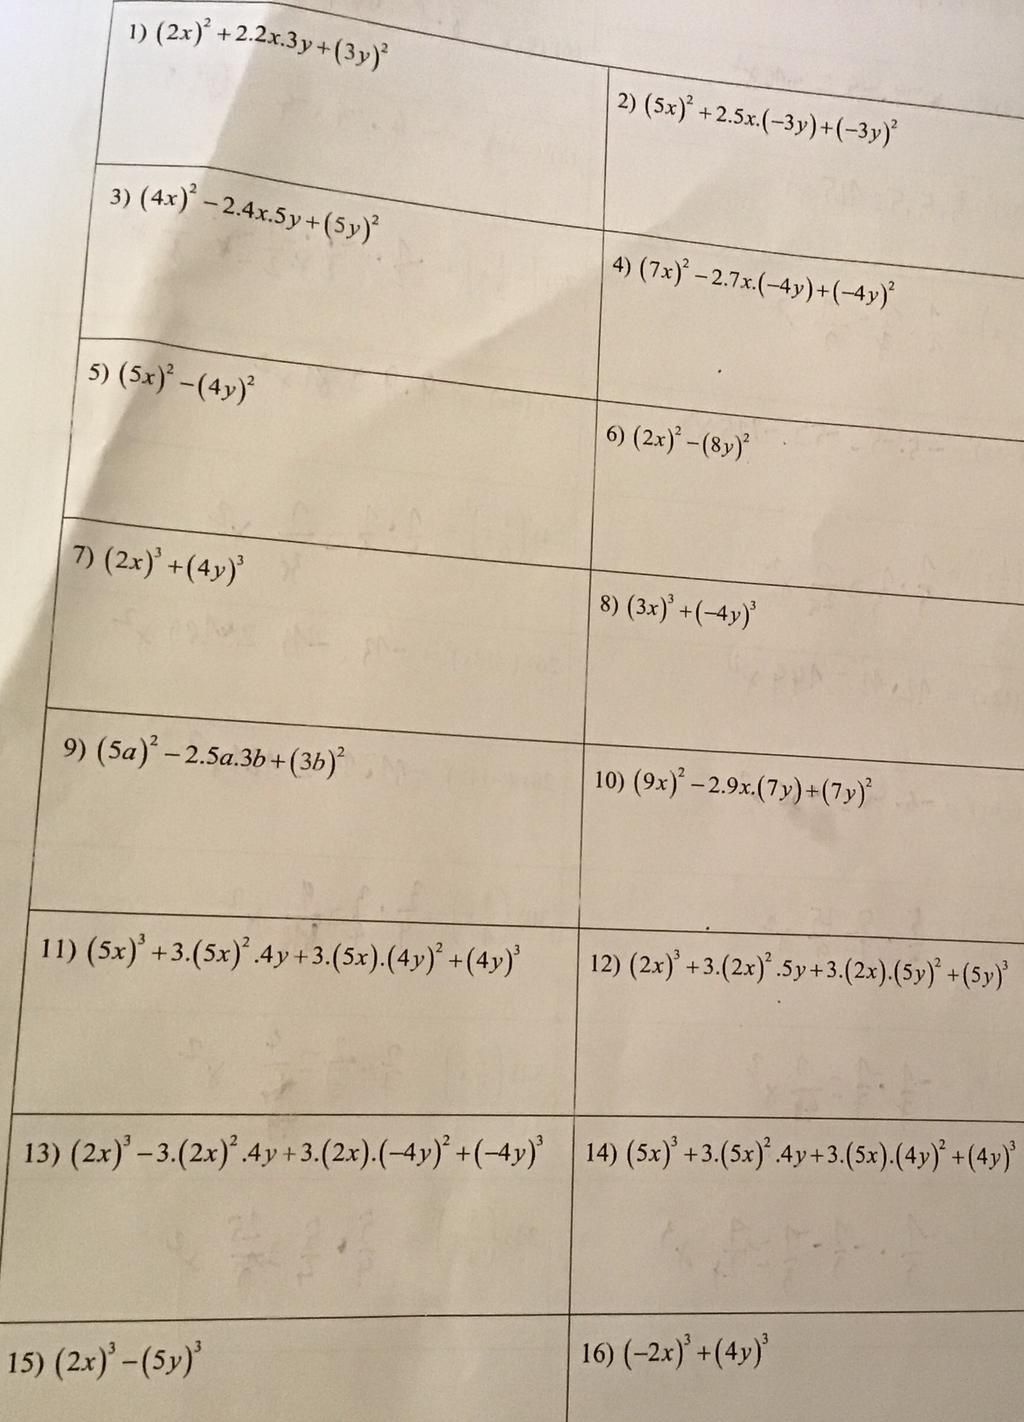 1) (2x)² + 2.2x.3y + (3y)²
2) (5x)² + 2.5x.(−3y) + (−3y)²
3) (4x)² − 2.4x.5y + (5y)²
4) (7x)² − 2.7x.(−4y) + (−4y)²
5) (5x)² − (4y)²
6) (2x)² − (8y)²
7) (2x)³ + (4y)³
8) (3x)³ + (−4y)³
9) (5a)² − 2.5a.3b + (3b)²
10) (9x)² − 2.9x.(7y) + (7y)²
11) (5x)³ + 3.(5x)².4y + 3.(5x).(4y)² + (4y)³
12) (2x)³ + 3.(2x)².5y + 3.(2x).(5y)² + (5y)³
13) (2x)³ − 3.(2x)².4y + 3.(2x).(−4y)² + (−4y)³
14) (5x)³ + 3.(5x)².4y + 3.(5x).(4y)² + (4y)³
15) (2x)³ − (5y)³
16) (−2x)³ + (4y)³